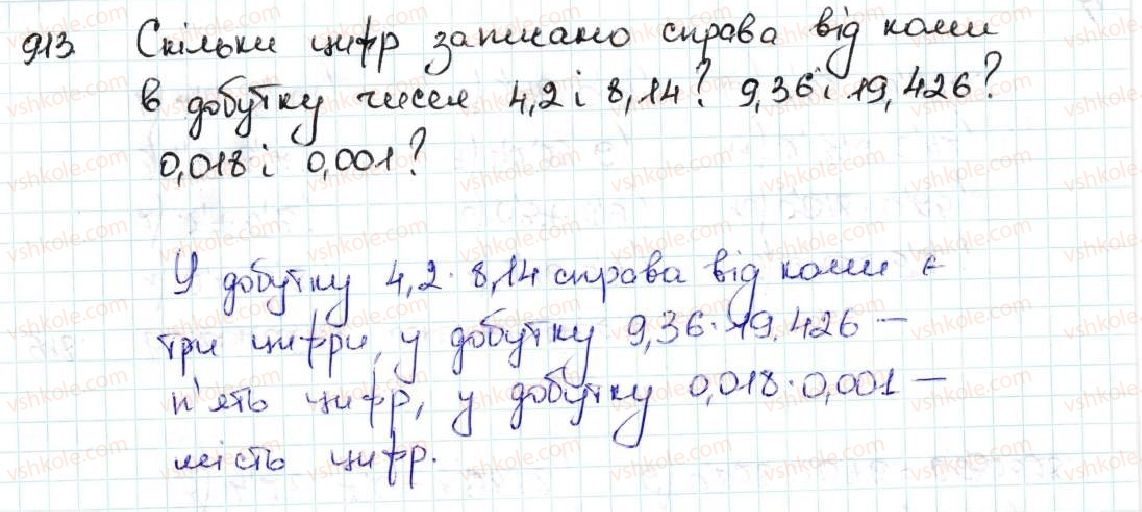 913. Скільки цифр записано справа від коми
в добутку чисел 4,2 і 8,14? 9,36 і 19,426?
0,018 і 0,001?
У добутку 4,2 · 8,14 справа від коми є
три цифри, у добутку 9,36 · 19,426 —
п'ять цифр, у добутку 0,018 · 0,001 —
шість цифр.